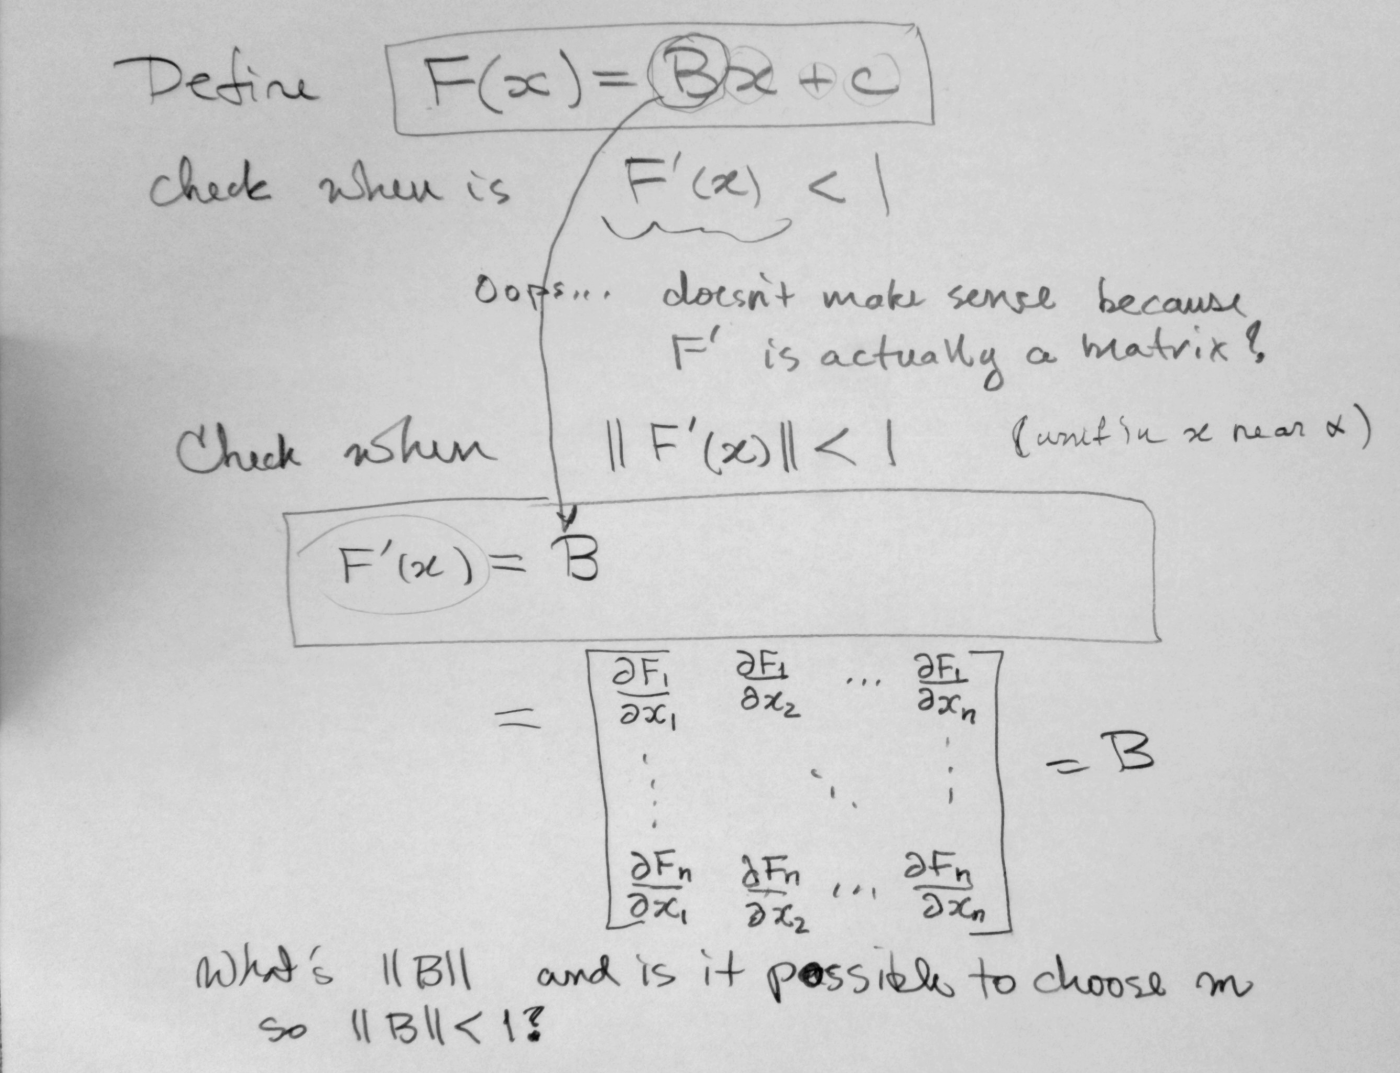 Define F(x) = Bx + c
Check when is F'(x) < 1
Oops... doesn't make sense because
F' is actually a matrix!
Check when ‖F'(x)‖ < 1 (unif in x near α)
F'(x) = B
= [ ∂F₁/∂x₁ ∂F₁/∂x₂ ... ∂F₁/∂xₙ
⋮ ⋱ ⋮
∂Fₙ/∂x₁ ∂Fₙ/∂x₂ ... ∂Fₙ/∂xₙ ] = B
What's ‖B‖ and is it possible to choose m
so ‖B‖ < 1?